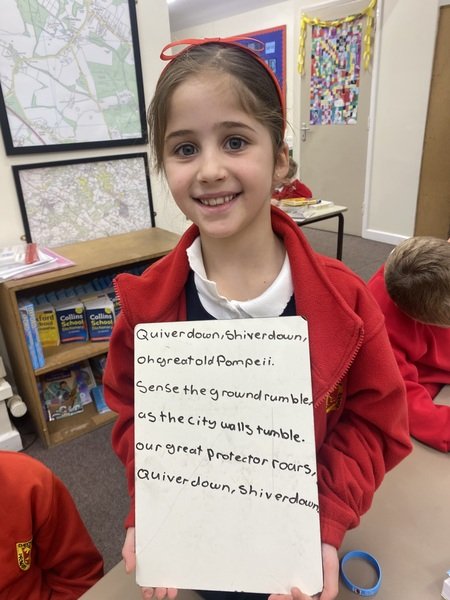 Quiver down, Shiver down,
oh great old Pompeii.
Sense the ground rumble,
as the city walls tumble.
our great protector roars,
Quiver down, Shiver down,
Collins
School
Dictionary
Collins
School
Dictionary